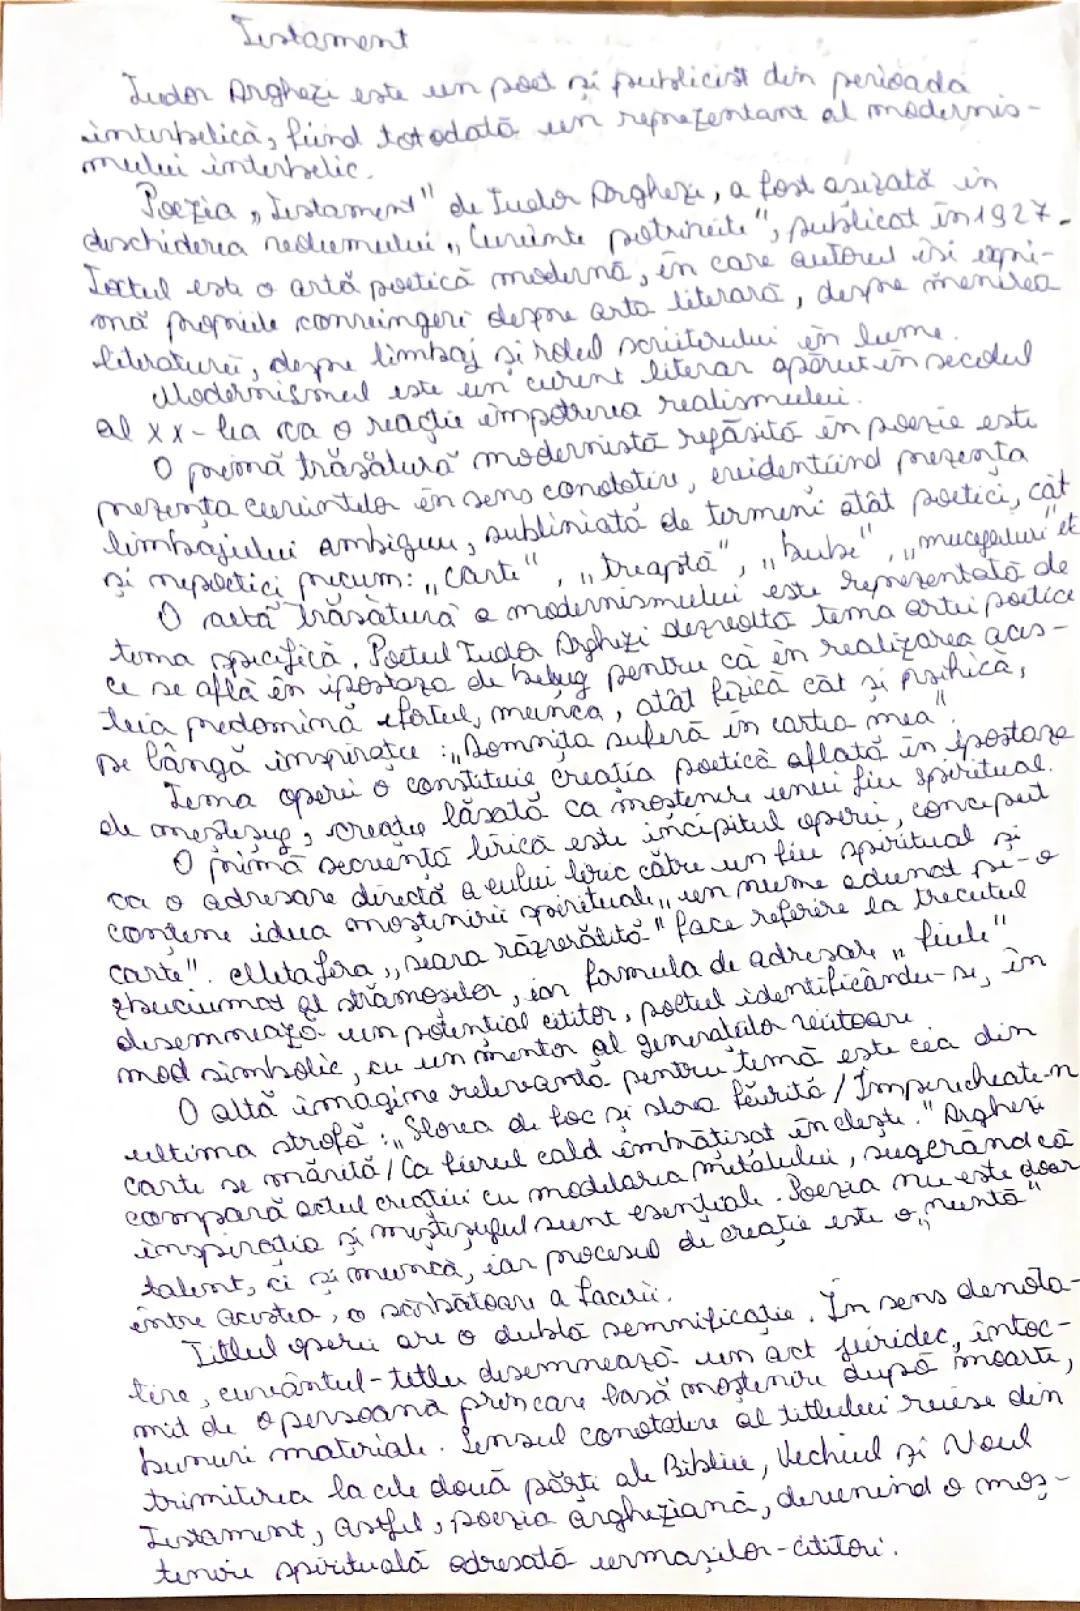 Testament
Tudor Arghezi este un poet și publicist din perioada
interbelică, fiind totodată un reprezentant al modernis-
mului interbelic.
Poezia „Testament" de Tudor Arghezi, a fost așezată în
deschiderea volumului „Cuvinte potrivite", publicat în 1927.
Textul este o artă poetică modernă, în care autorul își expri-
mă propriile convingeri despre arta literară, despre menirea
literaturii, despre limbaj și rolul scriitorului în lume.
Modernismul este un curent literar apărut în secolul
al XX-lea ca o reacție împotriva realismului.
O primă trăsătură modernistă regăsită în poezie este
prezența cuvintelor în sens conotativ, evidențiind prezența
limbajului ambiguu, subliniată de termeni atât poetici, cât
și nepoetici precum: „carte", „treaptă", „bube", „mucegaiuri" etc
O altă trăsătură a modernismului este reprezentată de
tema specifică. Poetul Tudor Arghezi dezvoltă tema artei poetice
ce se află în ipostaza de beteșug pentru că în realizarea aces-
teia predomină efortul, munca, atât fizică cât și psihică,
pe lângă inspirație: „Domnița suferă în cartea mea".
Tema operei o constituie creația poetică aflată în ipostaza
de meșteșug, creație lăsată ca moștenire unui fiu spiritual.
O primă secvență lirică este incipitul operei, conceput
ca o adresare directă a eului liric către un fiu spiritual și
conține ideea moștenirii spirituale „un nume adunat pe-o
carte". Metafora „seara răzvrătită" face referire la trecutul
zbuciumat al strămoșilor, iar formula de adresare „fiule"
desemnează un potențial cititor, poetul identificându-se, în
mod simbolic, cu un mentor al generațiilor viitoare.
O altă imagine relevantă pentru temă este cea din
ultima strofă: „Slova de foc și slova făurită / Împerecheate-n
carte se mărită / Ca fierul cald îmbrățișat în clește." Arghezi
compară actul creației cu modelarea metalului, sugerând că
inspirația și meșteșugul sunt esențiale. Poezia nu este doar
talent, ci și muncă, iar procesul de creație este o „nuntă"
între acestea, o sărbătoare a facerii.
Titlul operei are o dublă semnificație. În sens denota-
tive, cuvântul-titlu desemnează un act juridic, întoc-
mit de o persoană prin care lasă moștenire după moarte,
bunuri materiale. Sensul conotativ al titlului reiese din
trimiterea la cele două părți ale Bibliei, Vechiul și Noul
Testament, astfel, poezia argheziană, devenind o moș-
tenire spirituală adresată urmașilor-cititori.